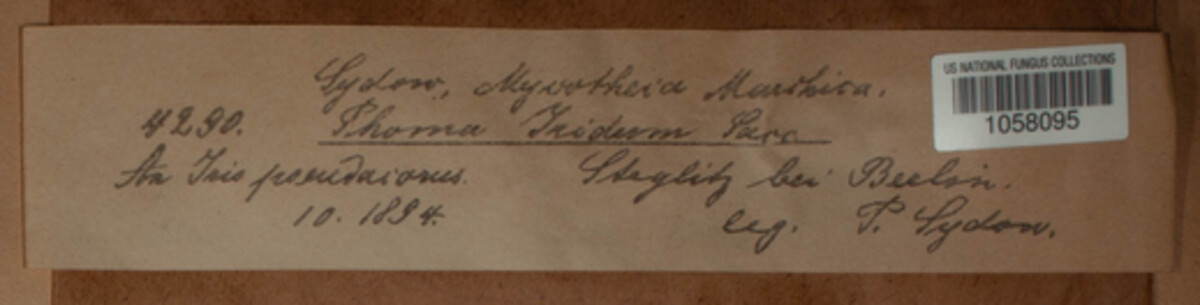 Sydow, Mycotheca Marchica.
4290. Phoma Iridum Sacc
An Iris pseudacorus. Steglitz bei Berlin.
10. 1894. leg. P. Sydow.
US NATIONAL FUNGUS COLLECTIONS
1058095